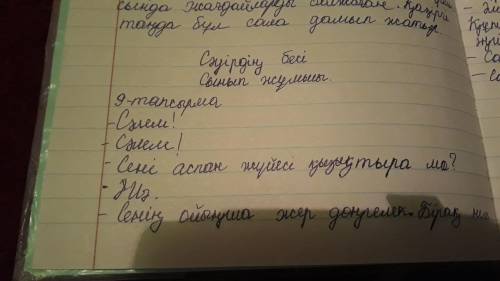 сында жағдайларды
таңда бұл сала дамып жатыр
Сәуірдің бесі
Сынып жұмысы.
9-тапсырма
- Сәлем!
- Сәлем!
- Сені аспан жүйесі қызықтыра ма?
- Иә.
- Сенің ойыңша жер дөңгелек. Бірақ